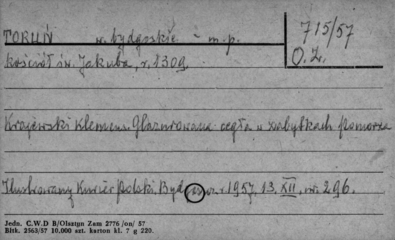 TORUŃ w. bydgoskie - m. p.
715/57
O.Z.
kościół św. Jakuba, r. 1309.
Krajewski Klemens. Glazurowana cegła w zabytkach Pomorza
Ilustrowany Kurier Polski, Bydgoszcz r. 1957, 13.XII, nr. 296.
Jedn. C.W.D B/Olsztyn Zam 2776 /on/ 57
Bltk. 2563/57 10.000 szt. karton kl. 7 g 220.